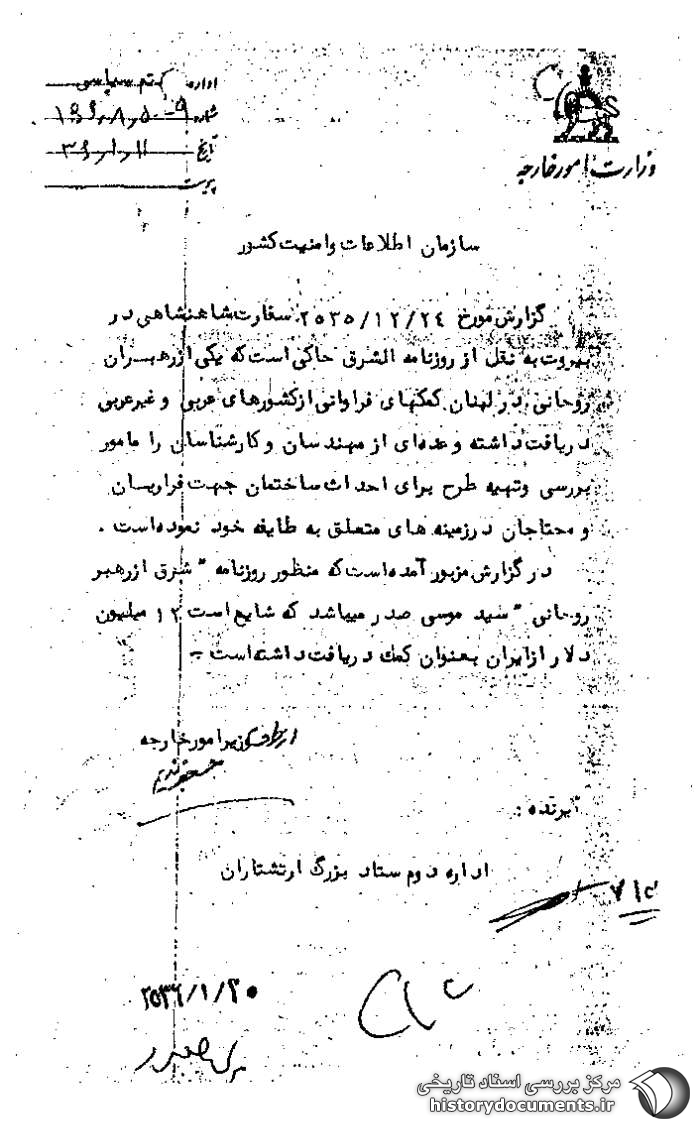 اداره نهم سیاسی
شماره
تاریخ ۳۶٫۱٫۱۱
پیوست
وزارت امور خارجه
سازمان اطلاعات و امنیت کشور
گزارش مورخ ۲۵۳۵/۱۲/۲۴ سفارت شاهنشاهی در
بیروت به نقل از روزنامه الشرق حاکی است که یکی از رهبران
روحانی در لبنان کمکهای فراوانی از کشورهای عربی و غیر عربی
دریافت داشته و عده‌ای از مهندسان و کارشناسان را مامور
بررسی و تهیه طرح برای احداث ساختمان جهت فراریان
و محتاجان در زمینه های متعلق به طایفه خود نموده است .
در گزارش مزبور آمده است که منظور روزنامه " شرق از رهبر
روحانی " سید موسی صدر میباشد که شایع است ۱۲ میلیون
دلار از ایران بعنوان کمک دریافت داشته است -
از طرف وزیر امور خارجه
برنده :
اداره دوم ستاد بزرگ ارتشتاران
۷۱۲
۲۵۳۶/۱/۲۰
مرکز بررسی اسناد تاریخی
historydocuments.ir